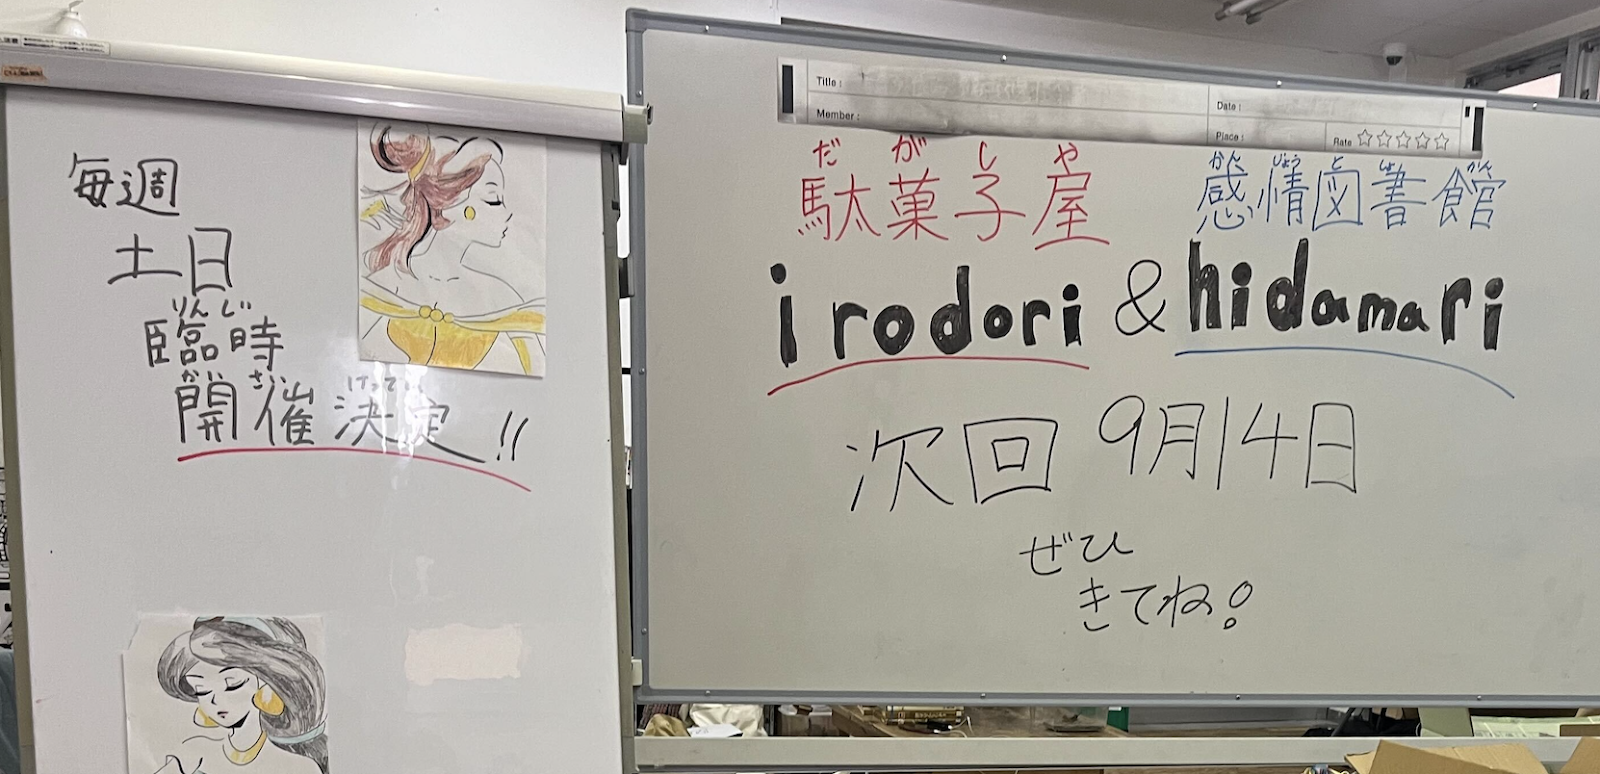 毎週
土日
りんじ
臨時
かい さい けってい
開催決定!!
Title :
Date :
Member :
Place :
Rate ☆☆☆☆☆
だ が し や
駄菓子屋
かん じょう と しょ かん
感情図書館
irodori & hidamari
次回 9月14日
ぜひ
きてね!